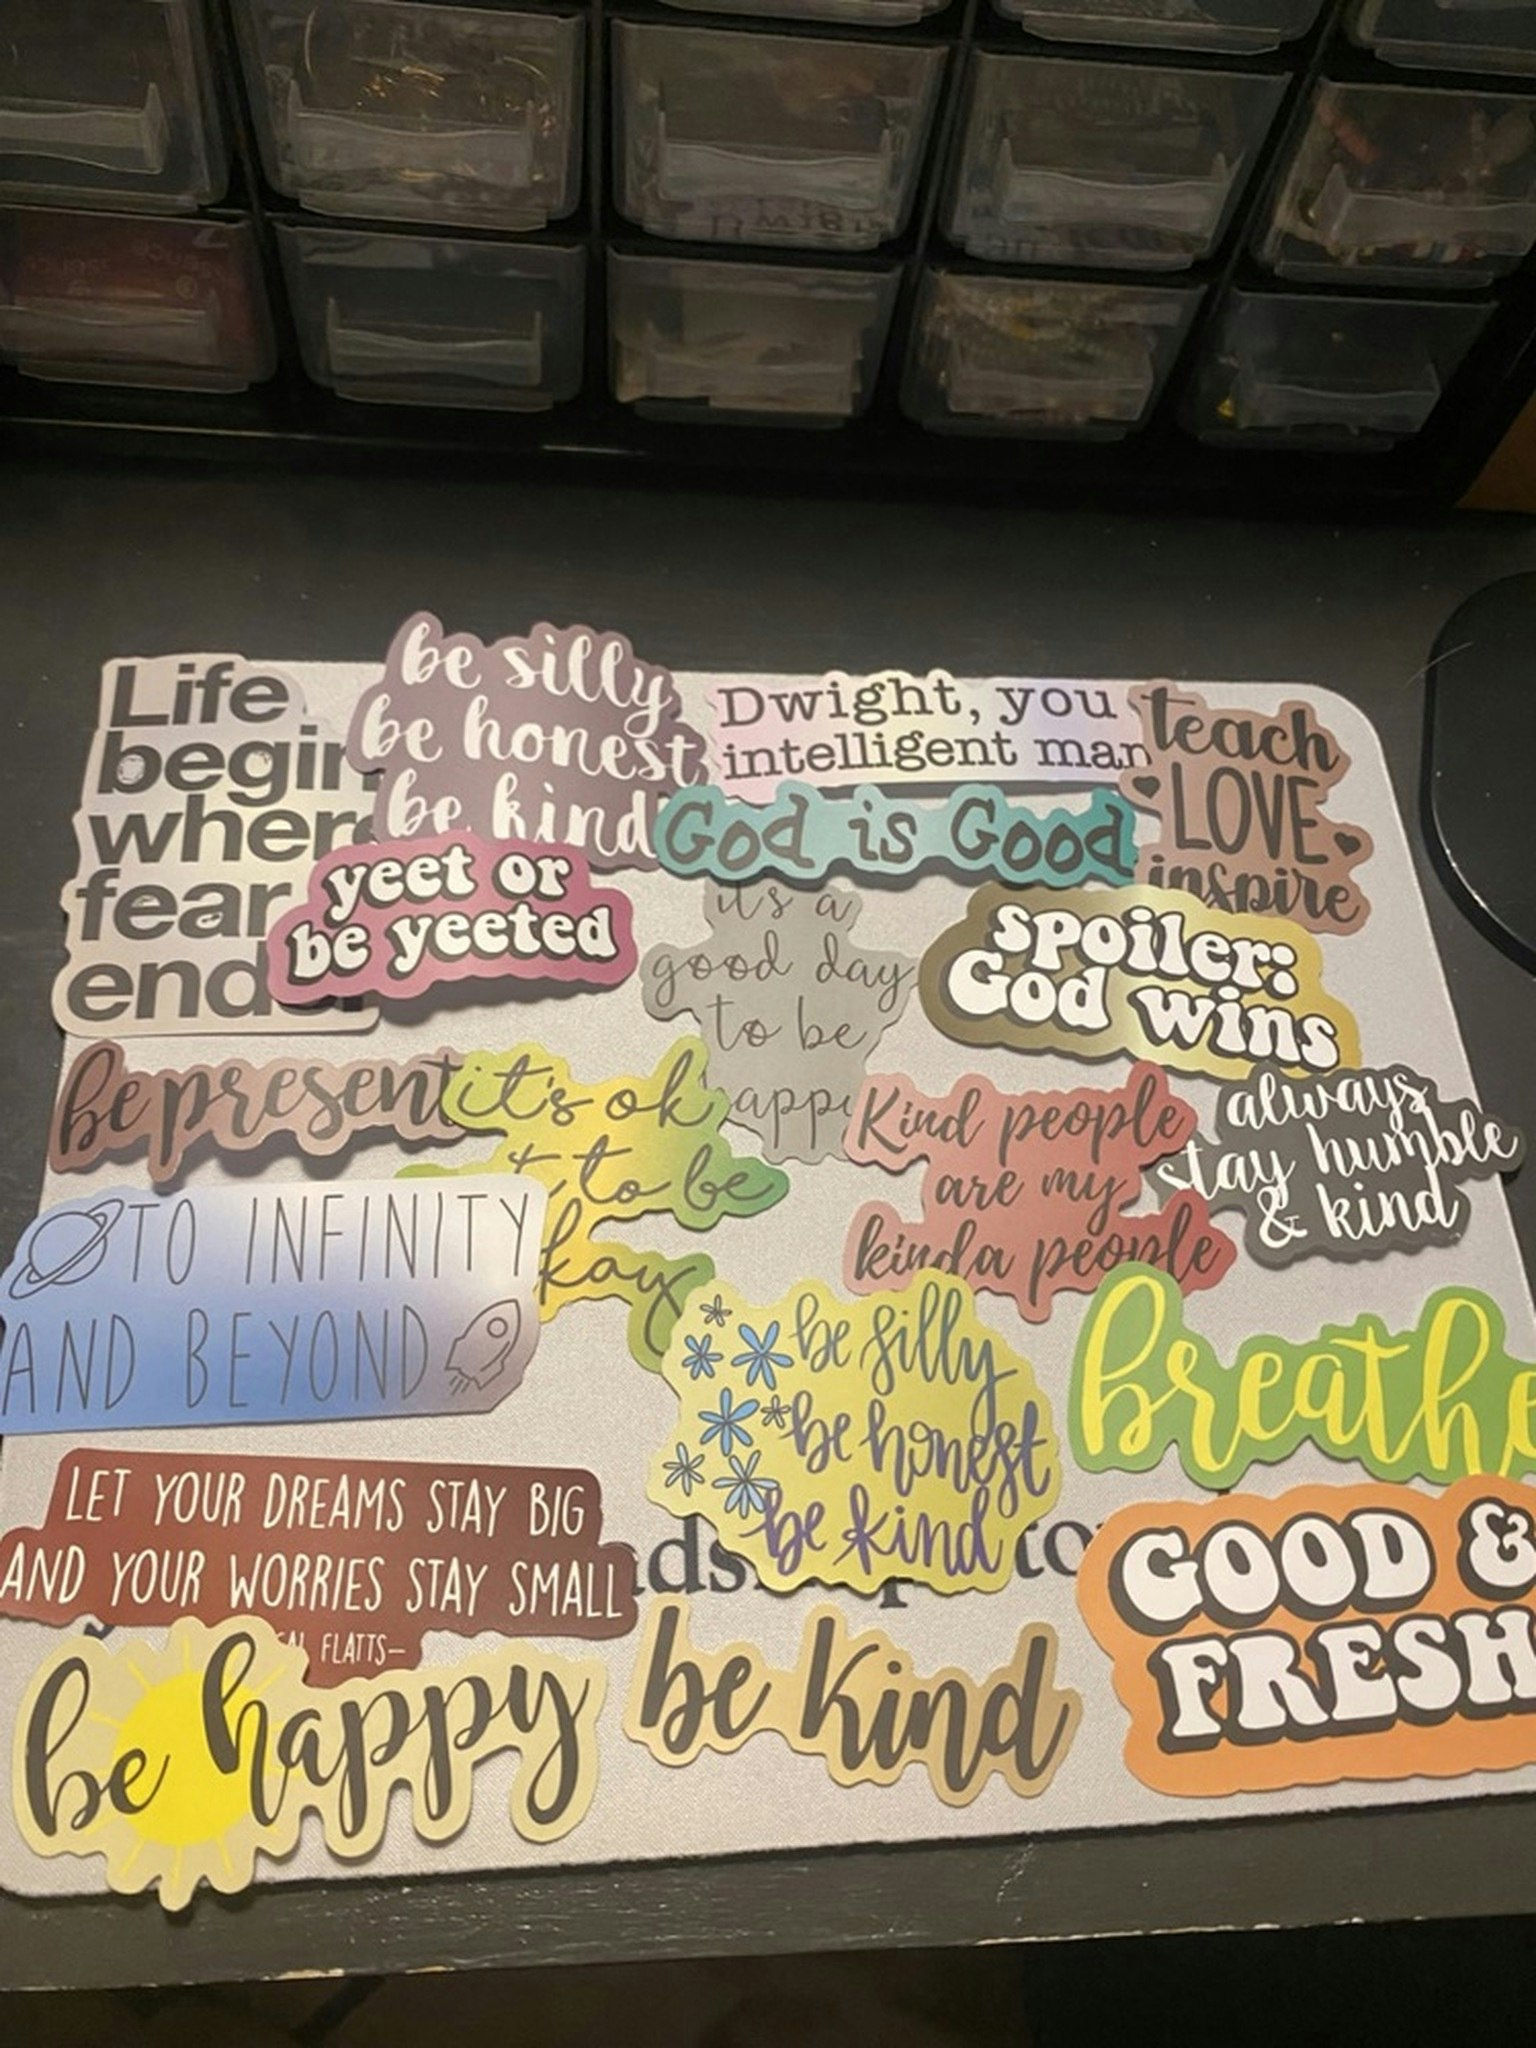 Life
begin
where
fear
end
be silly
be honest
be kind
Dwight, you
intelligent man
teach
LOVE
inspire
God is Good
yeet or
be yeeted
it's a
good day
to be
happy
spoiler:
God wins
be present
it's ok
to be
kay
Kind people
are my
kinda people
always
stay humble
& kind
TO INFINITY
AND BEYOND
be silly
be honest
be kind
breathe
LET YOUR DREAMS STAY BIG
AND YOUR WORRIES STAY SMALL
FLATTS—
be happy
be kind
GOOD &
FRESH